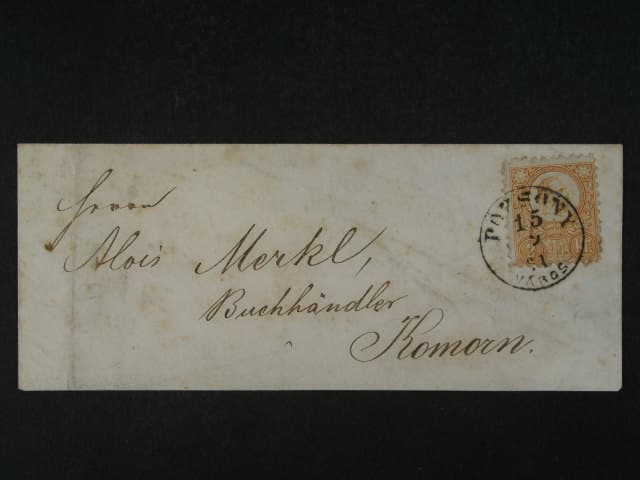 Herrn
Alois Merkl,
Buchhändler
Komorn.
POZSONY
15
9
VÁROS